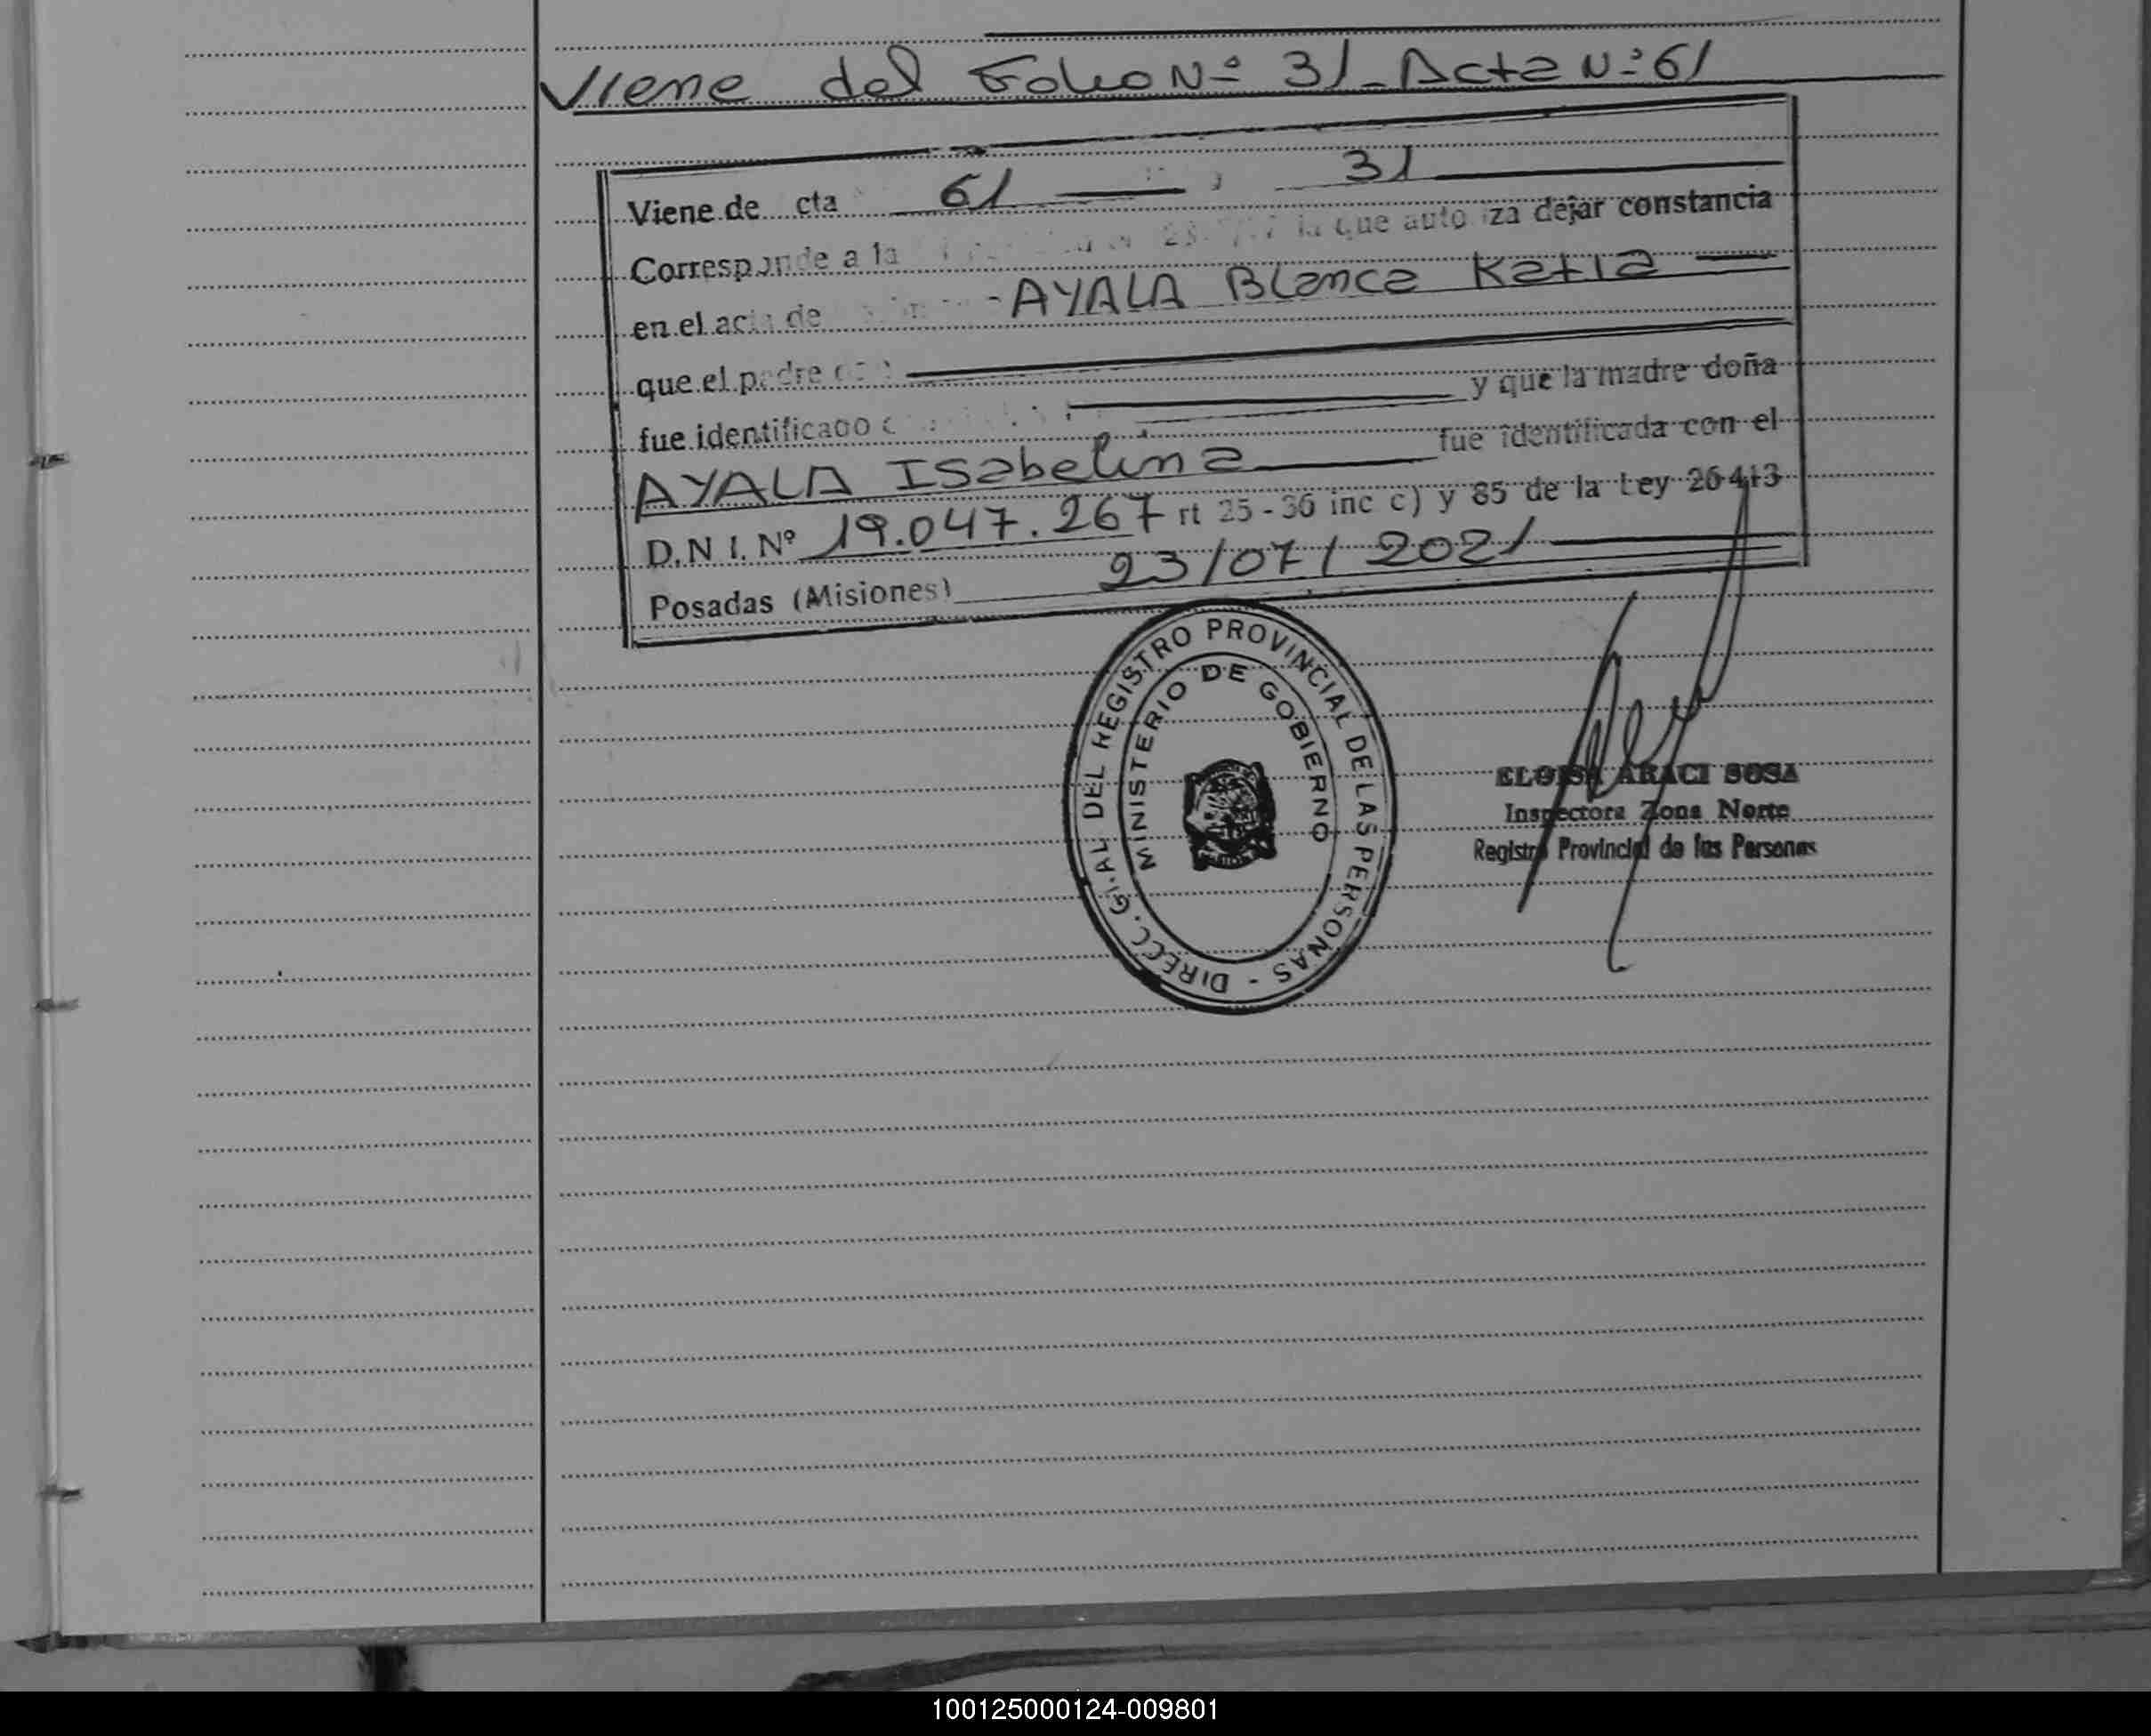 Viene del Folio Nº 31 - Acta Nº 61
Viene de cta 61 31
Corresponde a la la que auto iza dejar constancia
en el acta de - AYALA Blanca Katia
que el padre
fue identificado y que la madre doña
AYALA Isabelina fue identificada con el
D.N I. Nº 19.047.267 rt 25 - 36 inc c) y 85 de la Ley 26413
Posadas (Misiones) 23/07/2021
DIRECC. G.RAL DEL REGISTRO PROVINCIAL DE LAS PERSONAS -
MINISTERIO DE GOBIERNO
ELOISA ARACI SOSA
Inspectora Zona Norte
Registro Provincial de las Personas
100125000124-009801